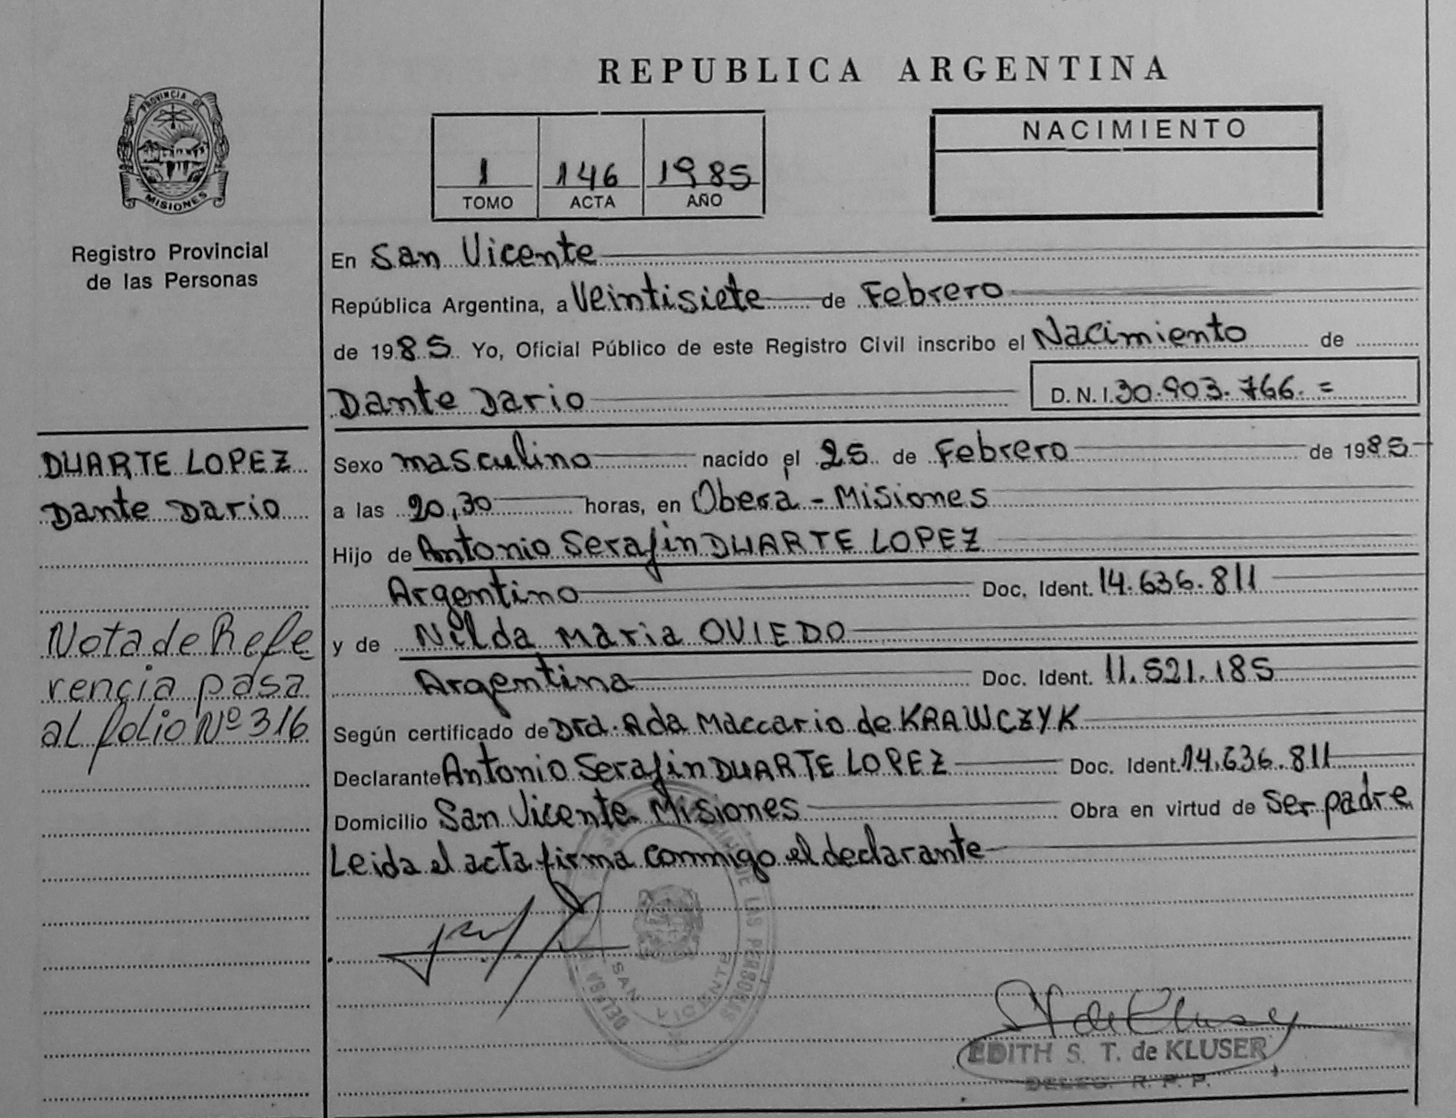 REPUBLICA ARGENTINA
PROVINCIA DE
MISIONES
Registro Provincial
de las Personas
1 146 1985
TOMO ACTA AÑO
NACIMIENTO
En San Vicente
República Argentina, a Veintisiete de Febrero
de 1985 Yo, Oficial Público de este Registro Civil inscribo el Nacimiento de
Dante Dario D.N.I. 30.903.766.=
DUARTE LOPEZ
Dante Dario
Nota de Refe
rencia pasa
al folio Nº 316
Sexo masculino nacido el 25 de Febrero de 1985
a las 20,30 horas, en Oberá - Misiones
Hijo de Antonio Serafin DUARTE LOPEZ
Argentino Doc. Ident. 14.636.811
y de Nélda Maria OVIEDO
Argentina Doc. Ident. 11.521.185
Según certificado de Dra. Ada Maccario de KRAWCZYK
Declarante Antonio Serafin DUARTE LOPEZ Doc. Ident. 14.636.811
Domicilio San Vicente Misiones Obra en virtud de Ser padre
Leida el acta firma conmigo el declarante
DE LAS PERSONAS
SAN VICENTE
EDITH S. T. de KLUSER
DELEG. R. P. P.